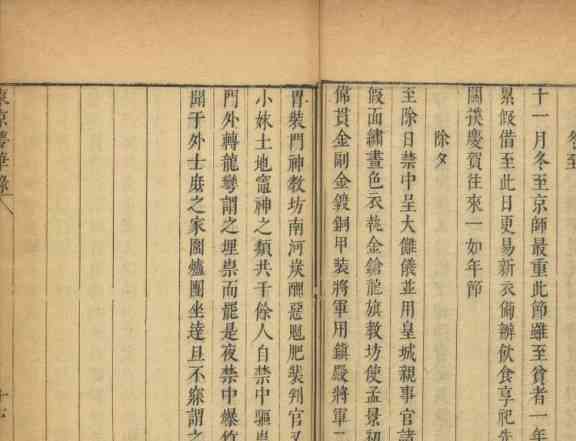 冬至
十一月冬至京師最重此節雖至貧者一年
累假借至此日更易新衣備辦飲食享祀先
關撲慶賀往來一如年節
除夕
至除日禁中呈大儺儀並用皇城親事官諸
假面繡畫色衣執金鎗龍旗教坊使孟景初
佛貫金副金鍍銅甲裝將軍用鎮殿將軍二
胄裝門神教坊南河炭醜惡魁肥裝判官又
小妹土地竈神之類共千餘人自禁中驅祟
門外轉龍彎謂之埋祟而罷是夜禁中爆竹
聞于外士庶之家圍爐團坐達旦不寐謂之
東京夢華錄